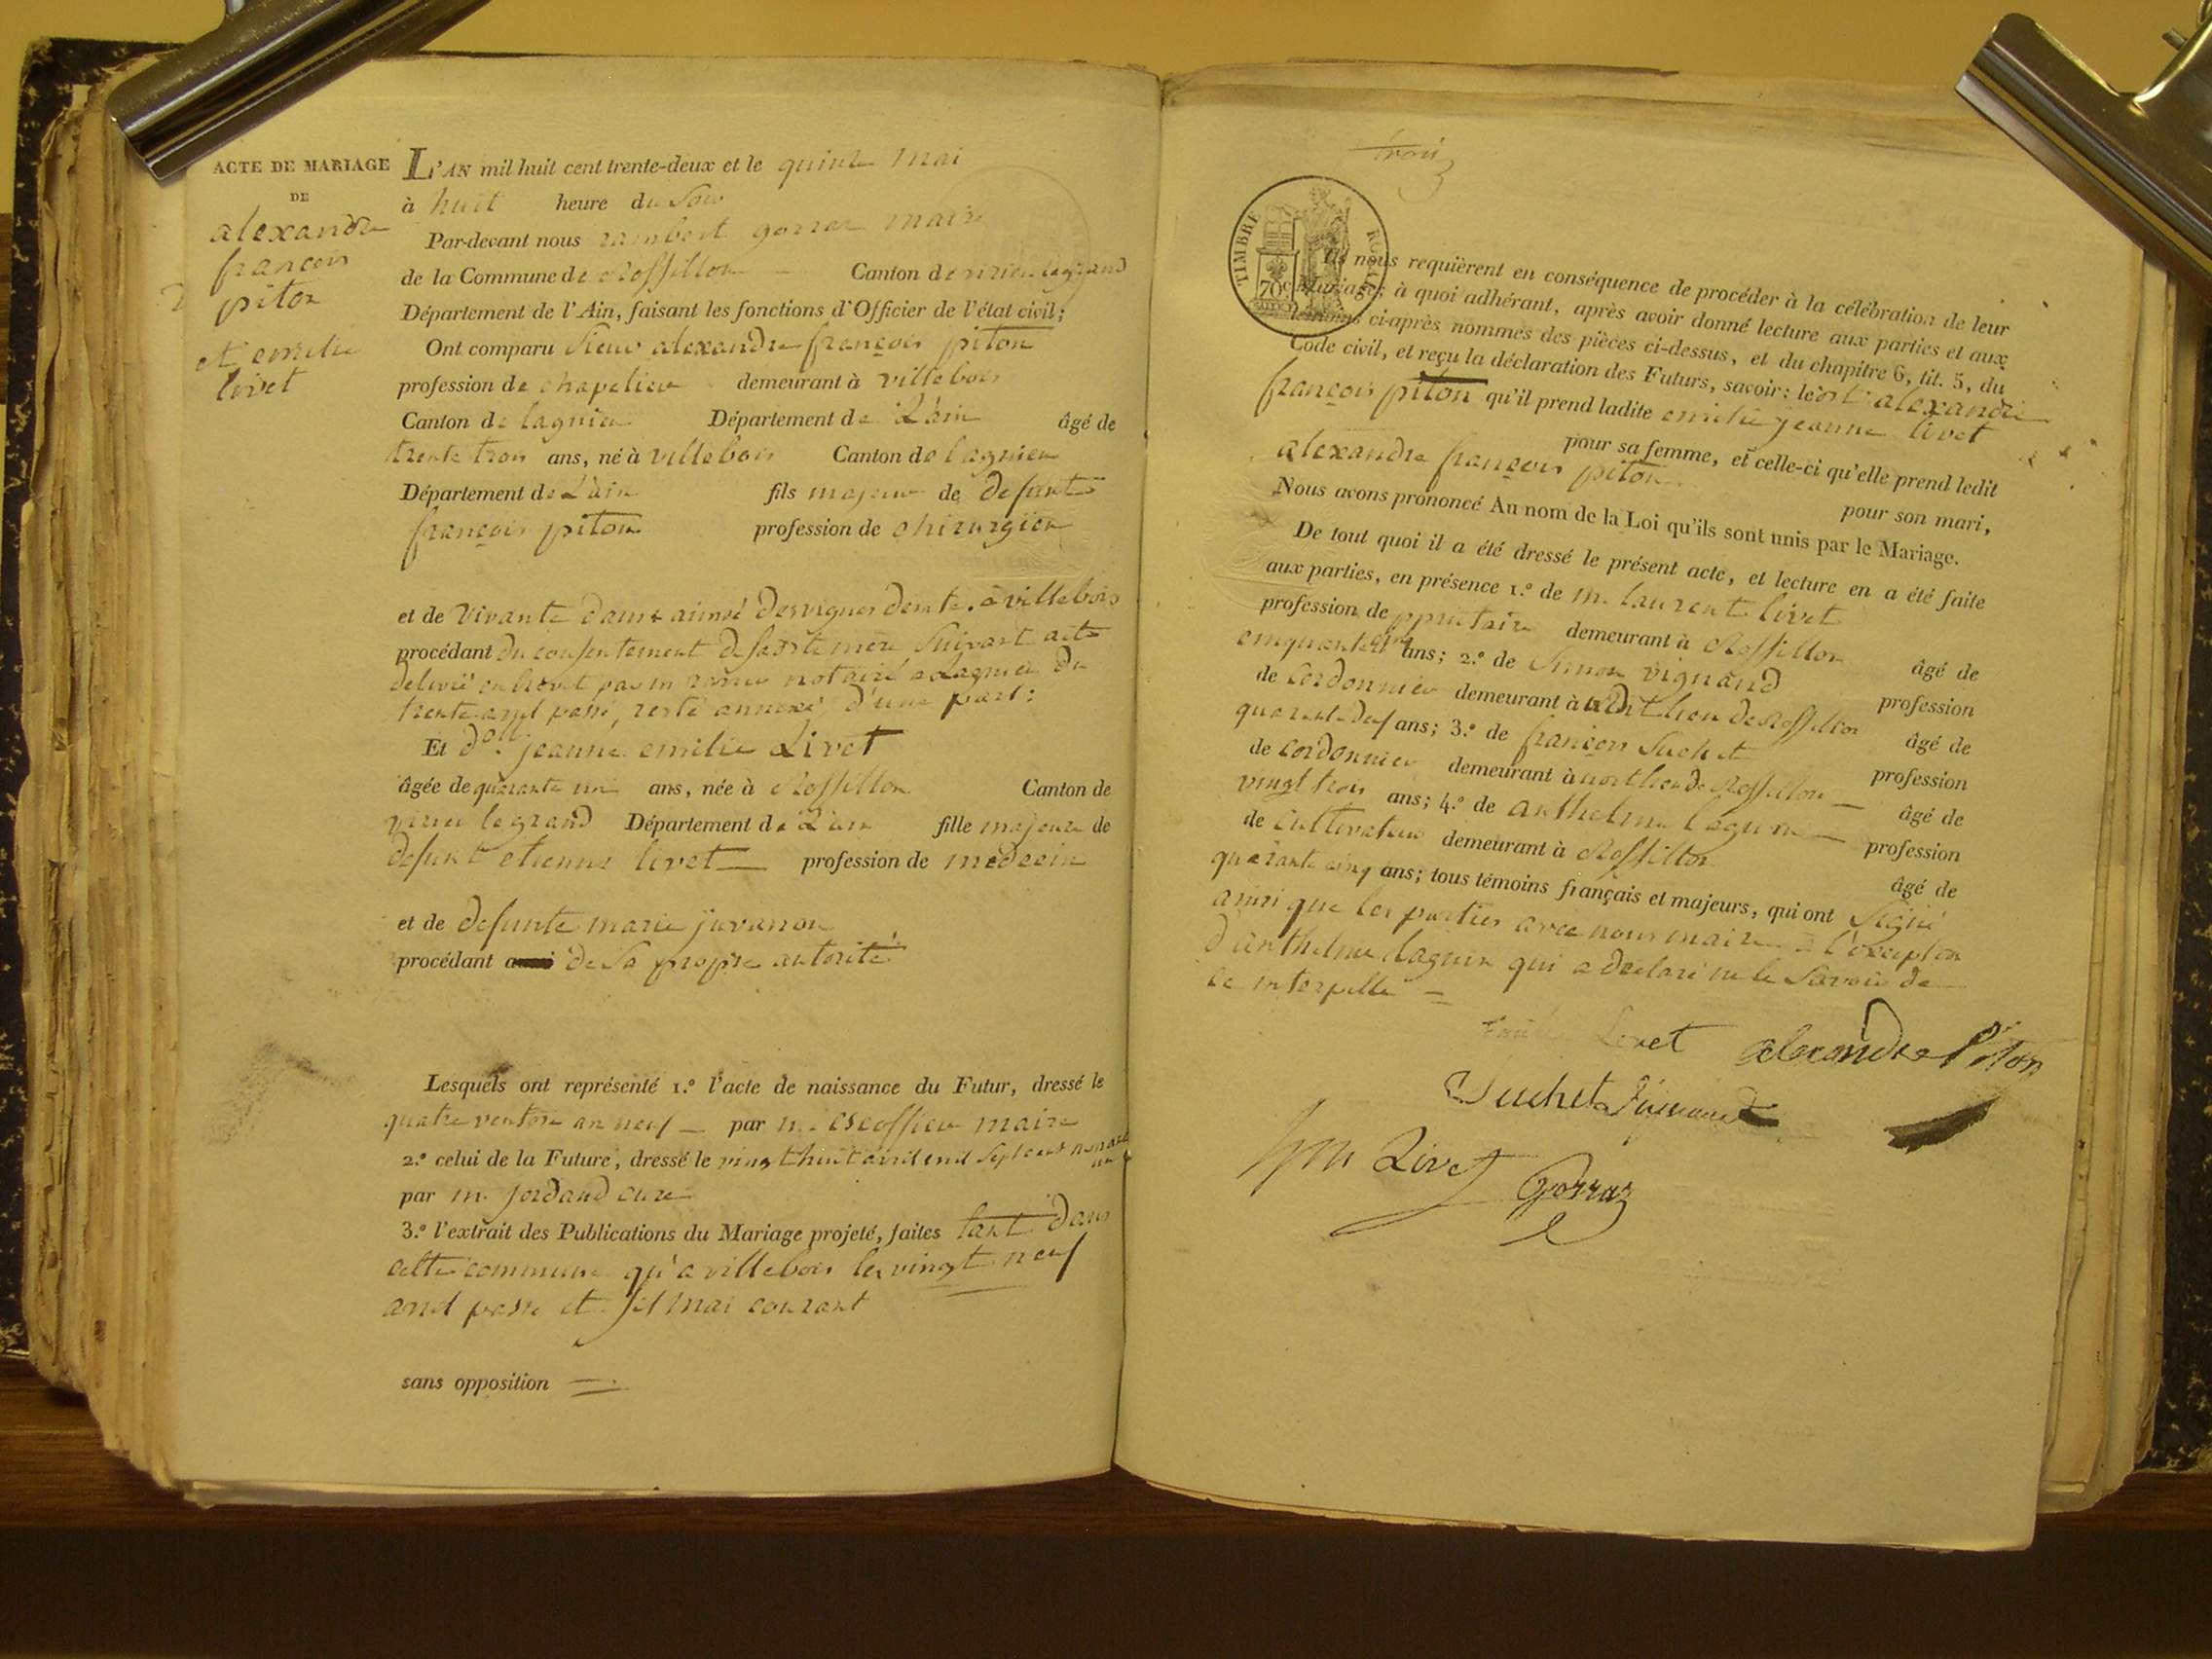 ACTE DE MARIAGE
DE
alexandre
françois
piton
et emilie
livet
L'AN mil huit cent trente-deux et le quinze mai
à huit heure du soir
Par-devant nous rambert gorraz maire
de la Commune de Rossillon Canton de virieu legrand
Département de l'Ain, faisant les fonctions d'Officier de l'état civil;
Ont comparu Sieur alexandre françois piton
profession de chapelier demeurant à villebois
Canton de lagnieu Département de L'ain âgé de
trente trois ans, né à villebois Canton de lagnieu
Département de L'ain fils majeur de defunt
françois piton profession de chirurgien
et de vivante dame aimée desvignes demte. à villebois
procédant du consentement de sadte mère suivant acte
delivré en brevet par m notaire a Lagnieu du
trente avril passé, resté annexé, d'une part:
Et dolle. jeanne emilie Livet
âgée de quarante un ans, née à Rossillon Canton de
virieu le grand Département de L'ain fille majeure de
defunt etienne livet profession de medecin
et de defunte marie juvanon
procédant de sa propre autorité
Lesquels ont représenté 1.º l'acte de naissance du Futur, dressé le
quatre ventose an neuf par m. escoffier maire
2.º celui de la Future, dressé le vingt huit avril mil sept cent nonante un
par m. jordand curé
3.º l'extrait des Publications du Mariage projeté, faites tant dans
cette commune qu'a villebois les vingt neuf
avril passé et six mai courant
sans opposition
trois
TIMBRE ROYAL
70c
Ils nous requièrent en conséquence de procéder à la célébration de leur
Mariage; à quoi adhérant, après avoir donné lecture aux parties et aux
témoins ci-après nommés des pièces ci-dessus, et du chapitre 6, tit. 5, du
Code civil, et reçu la déclaration des Futurs, savoir: ledt alexandre
françois piton qu'il prend ladite emilie jeanne livet
pour sa femme, et celle-ci qu'elle prend ledit
alexandre françois piton
pour son mari,
Nous avons prononcé Au nom de la Loi qu'ils sont unis par le Mariage.
De tout quoi il a été dressé le présent acte, et lecture en a été faite
aux parties, en présence 1.º de m. laurent livet
profession de pprietaire demeurant à Rossillon âgé de
cinquante ans; 2.º de Simon vignand profession
de cordonnier demeurant à lieu de Rossillon âgé de
quarante deux ans; 3.º de françois Suchet profession
de cordonnier demeurant à de Rossillon âgé de
vingt trois ans; 4.º de anthelme laguin profession
de cultivateur demeurant à Rossillon âgé de
quarante cinq ans; tous témoins français et majeurs, qui ont signé
ainsi que les parties avec nous maire a l'exception
d'anthelme laguin qui a déclaré ne le savoir de
ce interpellé
Livet alexandre Piton
Suchet Vignand
Livet
Gorraz